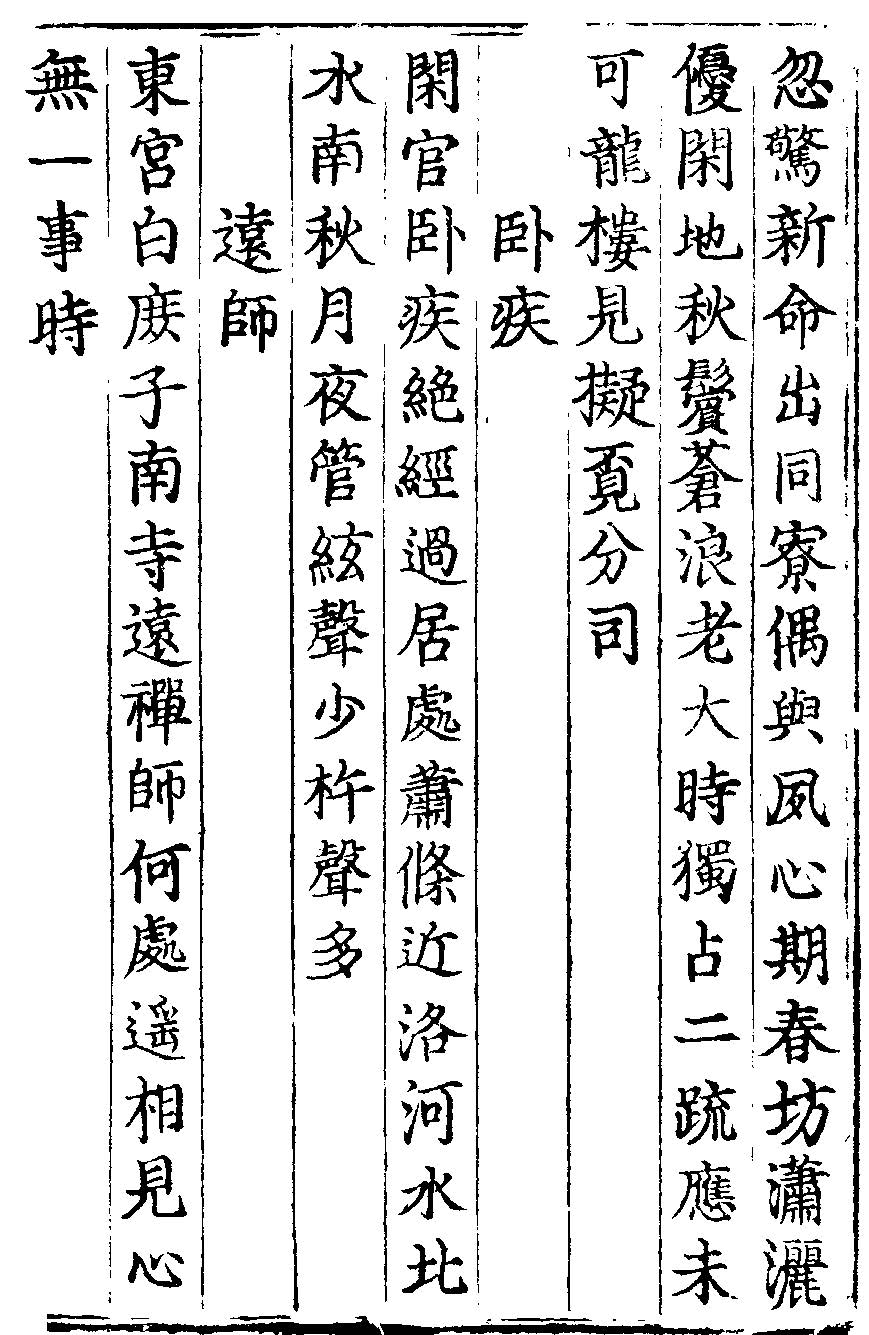 忽驚新命出同寮偶與夙心期春坊瀟灑
優閑地秋鬢蒼浪老大時獨占二疏應未
可龍樓見擬覓分司
卧疾
閑官卧疾絶經過居處蕭條近洛河水北
水南秋月夜管絃聲少杵聲多
遠師
東宮白庻子南寺遠禪師何處遥相見心
無一事時